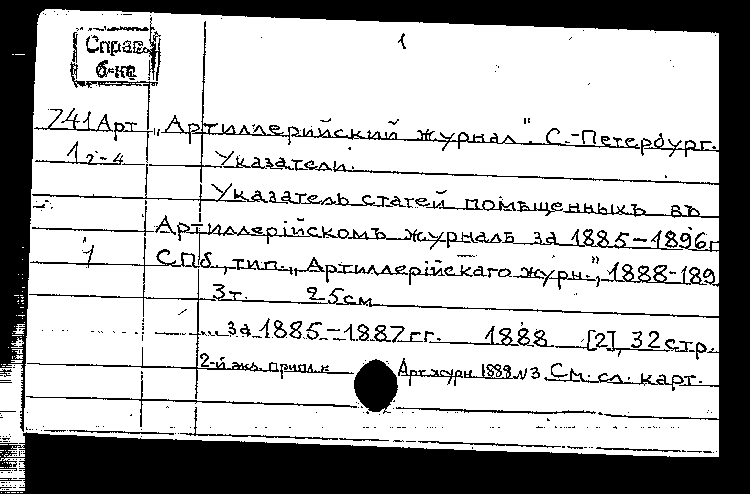 1
Справ.
б-ка
741 Арт „Артиллерийский журнал". С.-Петербург.
1 2-4 Указатели.
Указатель статей помѣщенныхъ въ
Артиллерійскомъ журналѣ за 1885-1896г
1 СПб., тип. „Артиллерійскаго журн.", 1888-189
3т. 25см
... за 1885-1887гг. 1888 [2], 32 стр.
2-й экз. припл. к Арт. журн. 1888 №3. См. сл. карт.